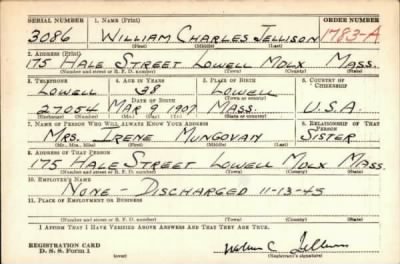 SERIAL NUMBER 1. NAME (Print) ORDER NUMBER
3086 WILLIAM CHARLES JELLISON 1783-A
(First) (Middle) (Last)
2. ADDRESS (Print)
175 HALE STREET LOWELL MDLX MASS.
(Number and street or R. F. D. number) (Town) (County) (State)
3. TELEPHONE 4. AGE IN YEARS 5. PLACE OF BIRTH 6. COUNTRY OF CITIZENSHIP
LOWELL 38 LOWELL
DATE OF BIRTH
27054 MAR 9 1907 MASS. U.S.A.
7. NAME OF PERSON WHO WILL ALWAYS KNOW YOUR ADDRESS 8. RELATIONSHIP OF THAT PERSON
MRS. IRENE MUNGOVAN SISTER
(Mr., Mrs., Miss) (First) (Middle) (Last)
9. ADDRESS OF THAT PERSON
175 HALE STREET LOWELL MDLX MASS.
(Number and street or R. F. D. number) (Town) (County) (State)
10. EMPLOYER'S NAME
NONE - DISCHARGED 11-13-45
11. PLACE OF EMPLOYMENT OR BUSINESS
(Number and street or R. F. D. number) (Town) (County) (State)
I AFFIRM THAT I HAVE VERIFIED ABOVE ANSWERS AND THAT THEY ARE TRUE.
REGISTRATION CARD
D. S. S. Form 1
(over) (Registrant's signature)